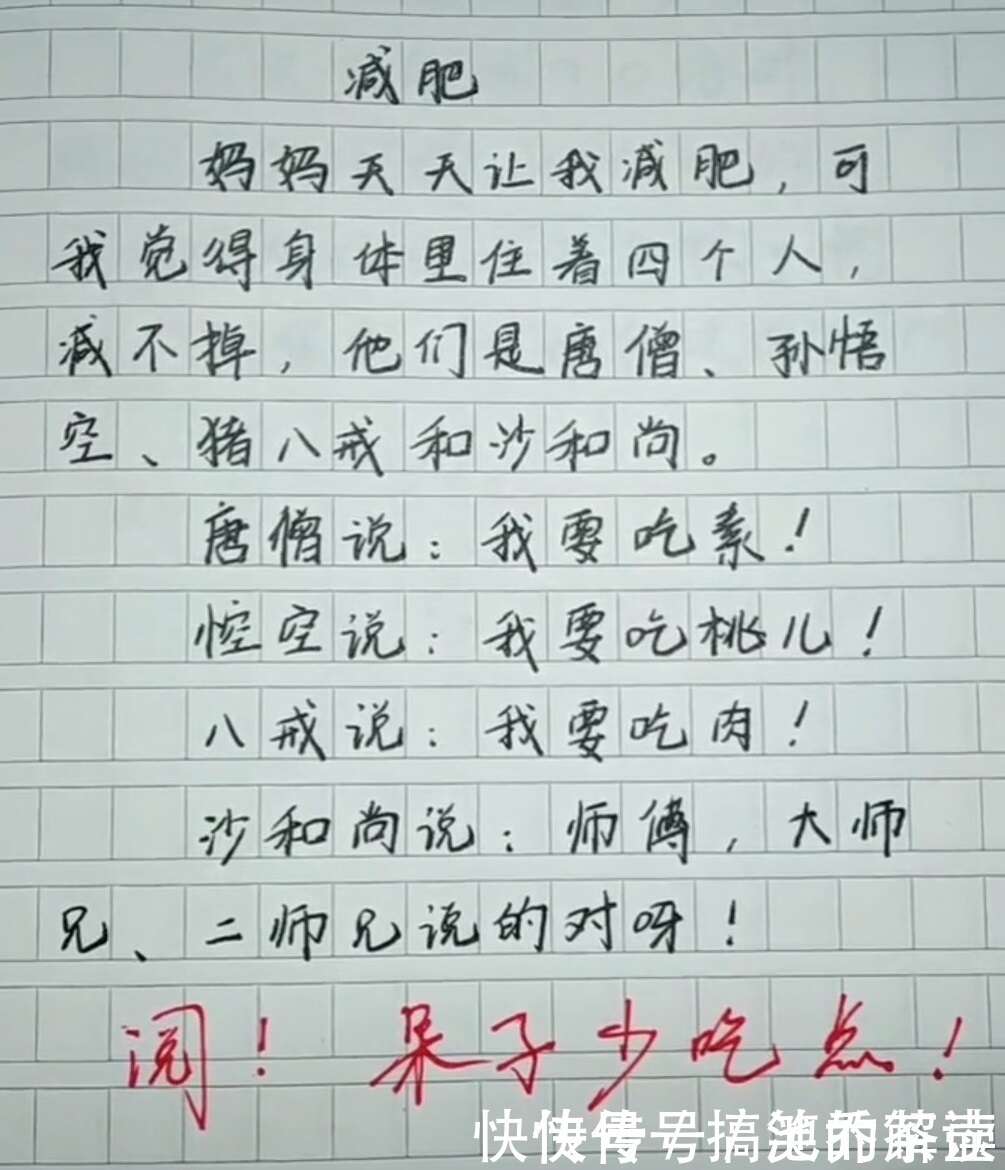 减肥
妈妈天天让我减肥，可
我觉得身体里住着四个人，
减不掉，他们是唐僧、孙悟
空、猪八戒和沙和尚。
唐僧说：我要吃素！
悟空说：我要吃桃儿！
八戒说：我要吃肉！
沙和尚说：师傅，大师
兄、二师兄说的对呀！
阅！呆子少吃点！
快传号